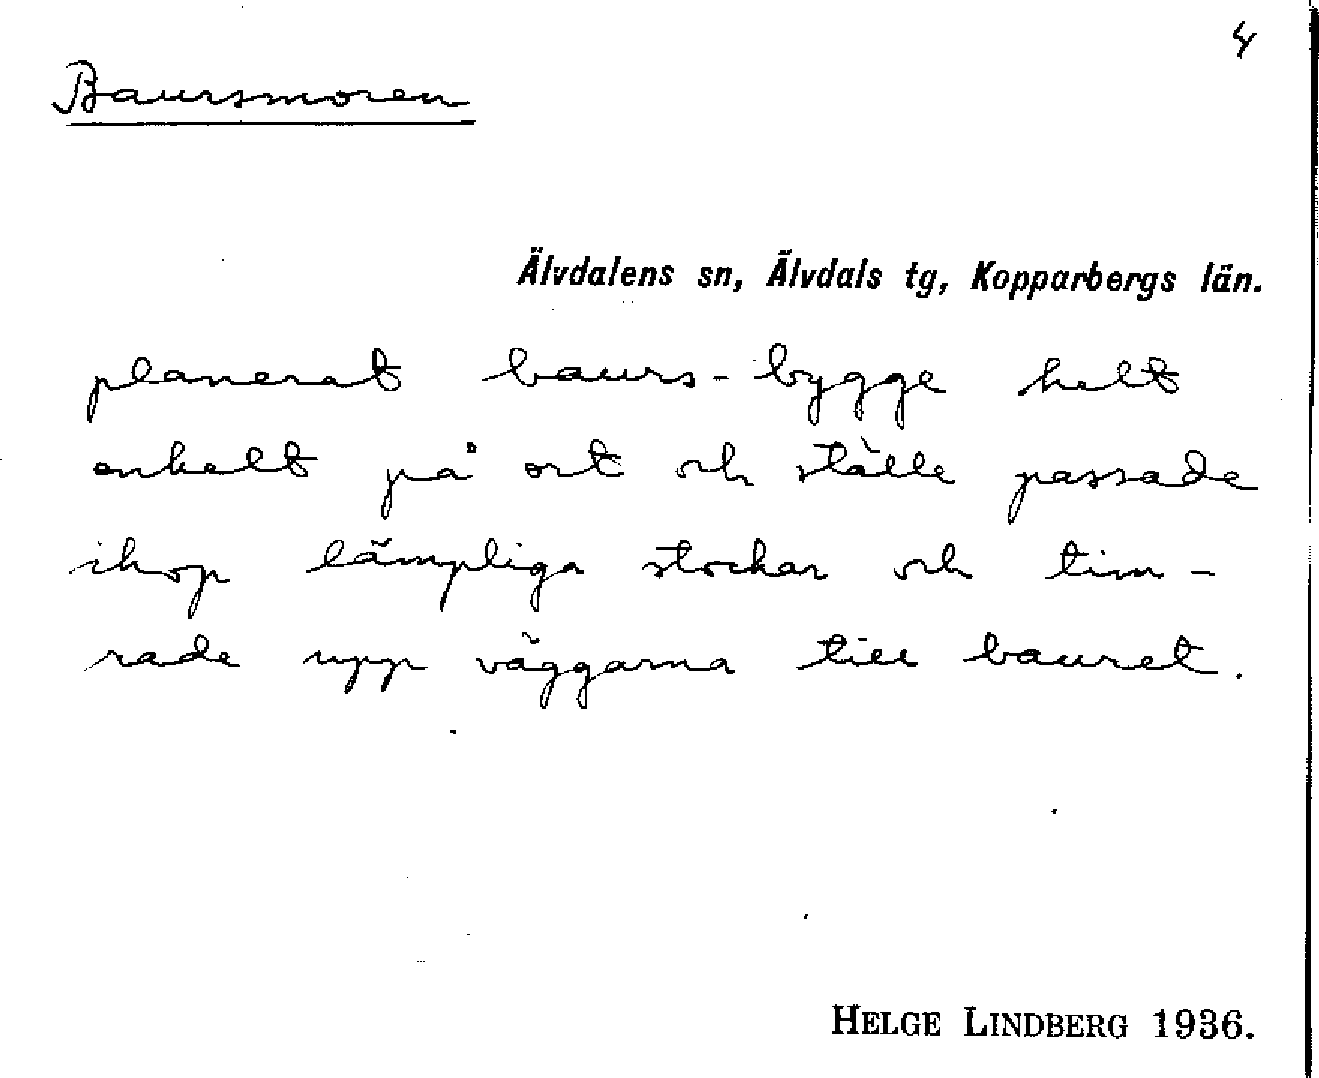 4
Baursmoren
Älvdalens sn, Älvdals tg, Kopparbergs län.
planerat baurs-bygge helt
enkelt på ort och ställe passade
ihop lämpliga stockar och tim-
rade upp väggarna till bauret.
HELGE LINDBERG 1936.